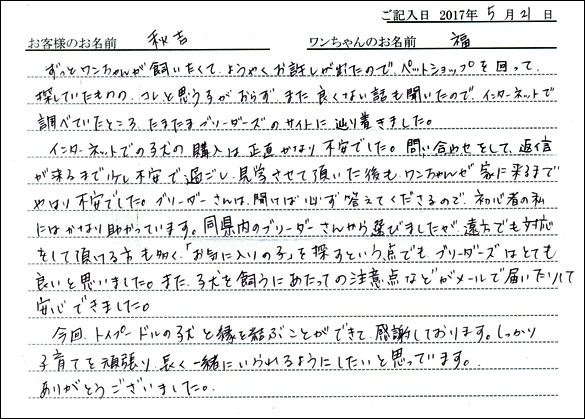 ご記入日 2017年 5月 21日
お客様のお名前 秋吉 ワンちゃんのお名前 福
ずっとワンちゃんが飼いたくて、ようやくお許しが出たので、ペットショップを回って、
探していたものの、コレと思う子がおらず、また良くない話も聞いたので、インターネットで
調べていたところ、たまたまブリーダーズのサイトに辿り着きました。
インターネットでの子犬の購入は正直かなり不安でした。問い合わせをして、返信
が来るまで少し不安で過ごし、見学させて頂いた後も、ワンちゃんが家に来るまで
やはり不安でした。ブリーダーさんは、聞けば必ず答えてくださるので、初心者の私
にはかなり助かっています。同県内のブリーダーさんから選びましたが、遠方でも対応
をして頂ける方も多く、「お気に入りの子」を探すという点でも、ブリーダーズはとても
良いと思いました。また、子犬を飼うにあたっての注意点などがメールで届いたりして
安心できました。
今回、トイプードルの子犬と縁を結ぶことができて、感謝しております。しっかり
子育てを頑張り、長く一緒にいられるようにしたいと思っています。
ありがとうございました。